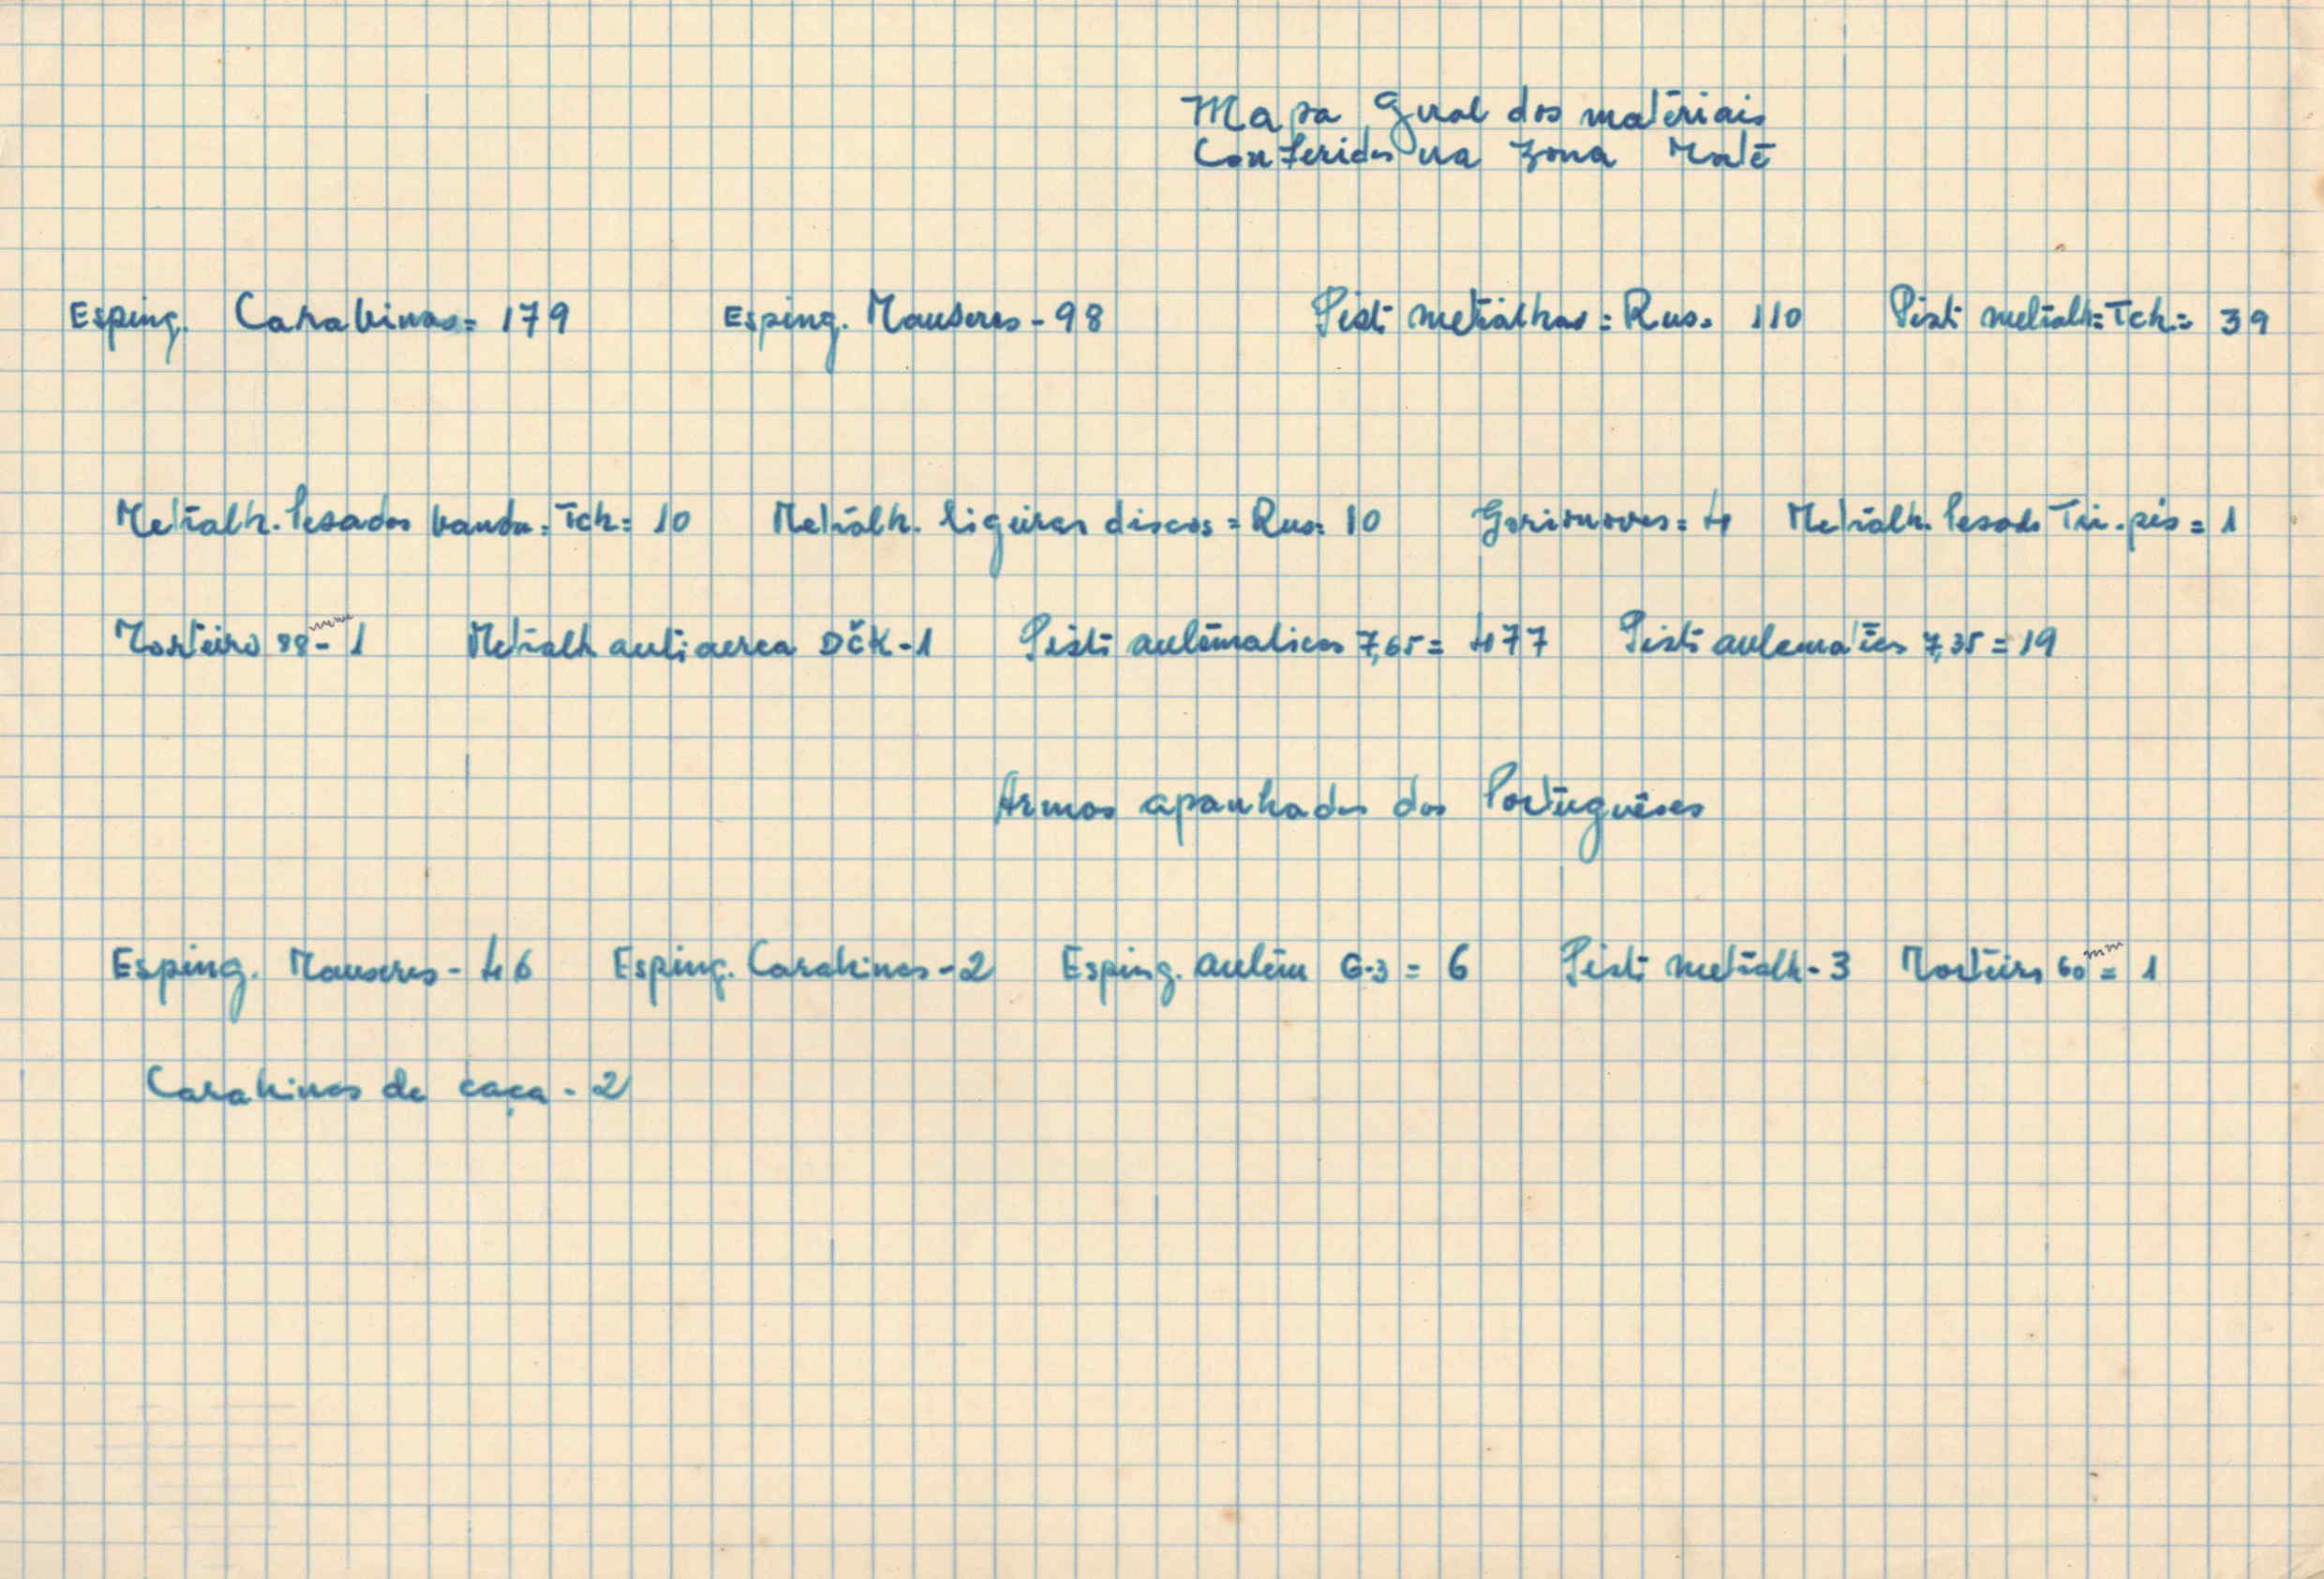 Mapa Geral dos matériais
Conferidos na zona Norte
Esping. Carabinas= 179 Esping. Mauseres - 98 Pist: metralhas = Rus. 110 Pist: metralh = Tch.= 39
Metralh. Pesadas banda = Tch= 10 Metralh. ligeiras discos = Rus= 10 Gorionoves = 4 Metralh. Pesada Tri. pés = 1
Morteiro 88mm - 1 Metralh antiaerea DČK - 1 Pist: autómaticas 7,65 = 477 Pist: automáticas 7,35 = 19
Armas apanhadas dos Portuguêses
Esping. Mauseres - 46 Esping. Carabinas - 2 Esping. autóm G-3 = 6 Pist: metralh - 3 Morteiro 60mm = 1
Carabinas de caça - 2